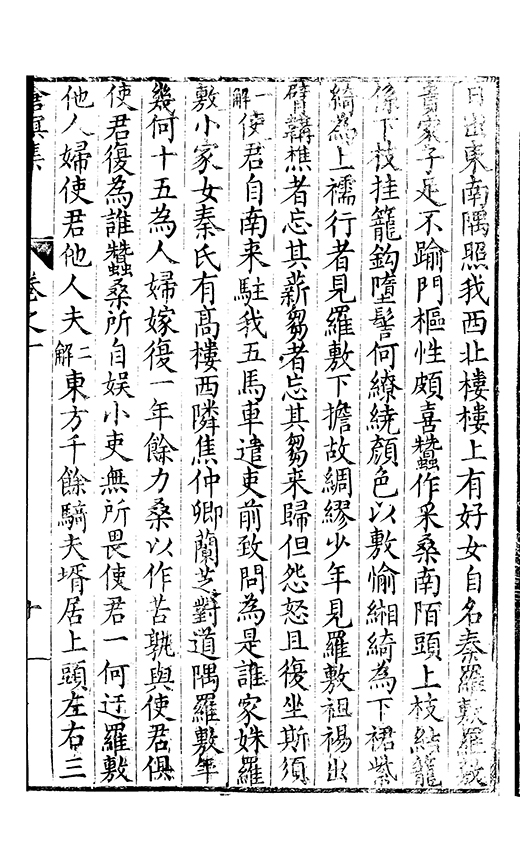 日出東南隅照我西北樓樓上有好女自名秦羅敷羅敷
貴家子足不踰門樞性頗喜蠶作采桑南陌頭上枝結籠
係下枝挂籠鈎墮髻何繚繞顏色以敷愉緗綺為下裙紫
綺為上襦行者見羅敷下擔故綢繆少年見羅敷袒裼出
臂韝樵者忘其薪芻者忘其芻来歸但怨怒且復坐斯須
一解使君自南来駐我五馬車遣吏前致問為是誰家姝羅
敷小家女秦氏有高樓西隣焦仲卿蘭芝對道隅羅敷年
幾何十五為人婦嫁復一年餘力桑以作苦孰與使君俱
使君復為誰蠶桑所自娱小吏無所畏使君一何迂羅敷
他人婦使君他人夫二解東方千餘騎夫壻居上頭左右三
滄溟集 卷之一 十一